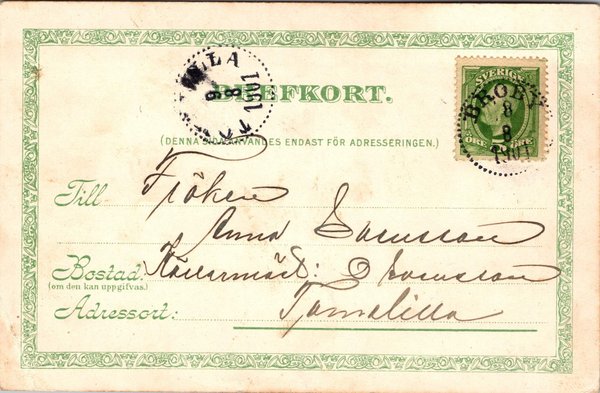 BREFKORT.
(DENNA SIDA ANVÄNDES ENDAST FÖR ADRESSERINGEN.)
SVERIGE
ÖRE
BROBY
8
8
1901
LLA
9
8
1901
Till Fröken
Anna Svensson
Bostad: Källarmäst: O Svensson
(om den kan uppgifvas.)
Adressort: Tomelilla